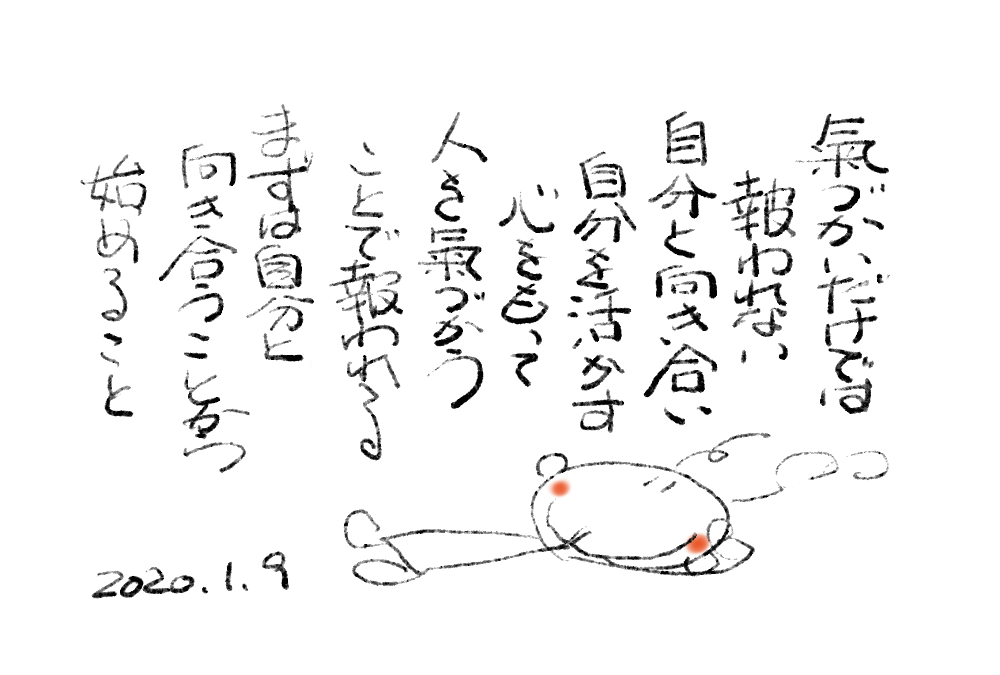 氣づかいだけでは
報われない
自分と向き合い
自分を活かす
心をもって
人を氣づかう
ことで報われる
まずは自分と
向き合うことから
始めること
2020.1.9